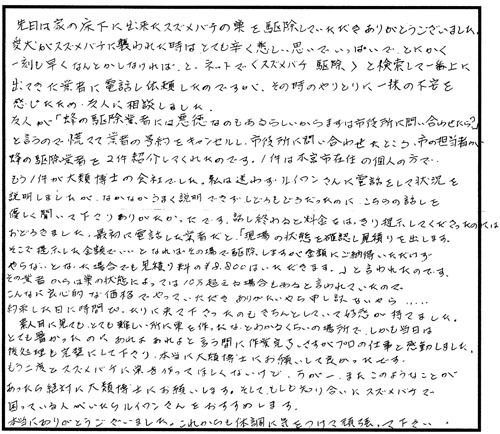 先日は家の床下に出来たスズメバチの巣を駆除していただきありがとうございました。
愛犬がスズメバチに襲われた時はとても辛く悲しい思いでいっぱいで、とにかく
一刻も早くなんとかしなければ、と、ネットで〈スズメバチ 駆除〉と検索して一番上に
出てきた業者に電話し依頼したのですが、その時のやりとりに一抹の不安を
感じたため友人に相談しました。
友人が「蜂の駆除業者には悪徳なのもあるらしいからまずは市役所に問い合わせたら?」
と言うので慌てて業者の予約をキャンセルし、市役所に問い合わせたところ、市の担当者から
蜂の駆除業者を2件紹介してくれたのです。1件は本宮市在住の個人の方で、
もう1件が大類博士の会社でした。私は迷わずルイワンさんに電話をして状況を
説明しましたが、なかなかうまく説明できずしどろもどろだったのに、こちらの話しを
優しく聞いて下さりありがたかったです。話し終わると料金もはっきり提示してくださったのには
おどろきました。最初に電話した業者だと、「現場の状態を確認し見積りを出します。
そこで提示した金額でいい、となればその場で駆除しますが金額にご納得いただけず
やらない、となった場合でも見積り料の¥8.800はいただきます。」と言われたのです。
その業者からは巣の状態によっては10万超える場合もあると言われていたので、
こんなに良心的な価格でやっていただきありがたいやら申し訳ないやら.....
約束した日に時間ぴったりに来て下さったのもきちんとしていて好感が持てました。
素人目に見ても、とても難しい所に巣を作ったな、とわかるくらいの場所で、しかも当日は
とても暑かったのにあれよあれよと言う間に作業完了。さすがプロの仕事と感動しました。
後処理も完璧にして下さり、本当に大類博士にお願いして良かったです。
もう二度とスズメバチに巣を作ってほしくないけど、万が一、またこのようなことが
あったら絶対に大類博士にお願いします。そして、もしも知り合いにスズメバチで
困っている人がいたらルイワンさんをおすすめします。
本当にありがとうございました。これからも体調に気をつけて頑張って下さい。